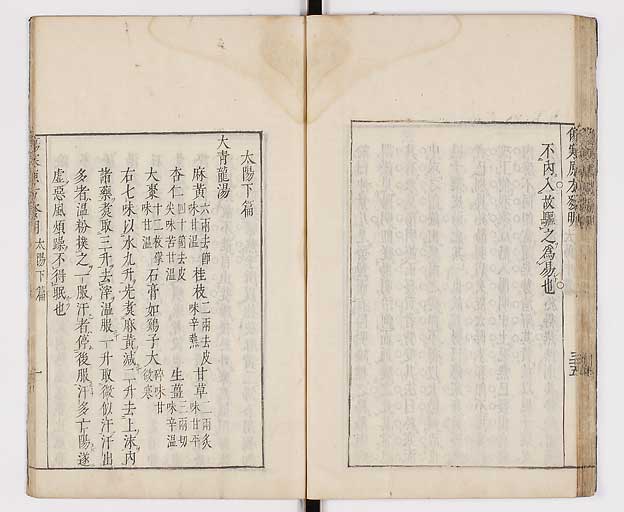 傷寒原方發明
不內入故驅之爲易也
三五
太陽下篇
大青龍湯
麻黃六兩去節味甘溫 桂枝二兩去皮味辛熱 甘草二兩炙味甘平
杏仁四十箇去皮尖味苦甘溫 生薑三兩切味辛溫
大棗十二枚擘味甘溫 石膏如鷄子大碎味甘微寒
右七味以水九升先煮麻黃減二升去上沫內
諸藥煮取三升去滓溫服一升取微似汗汗出
多者溫粉撲之一服汗者停後服汗多亡陽遂
虛惡風煩躁不得眠也
太陽下篇
一